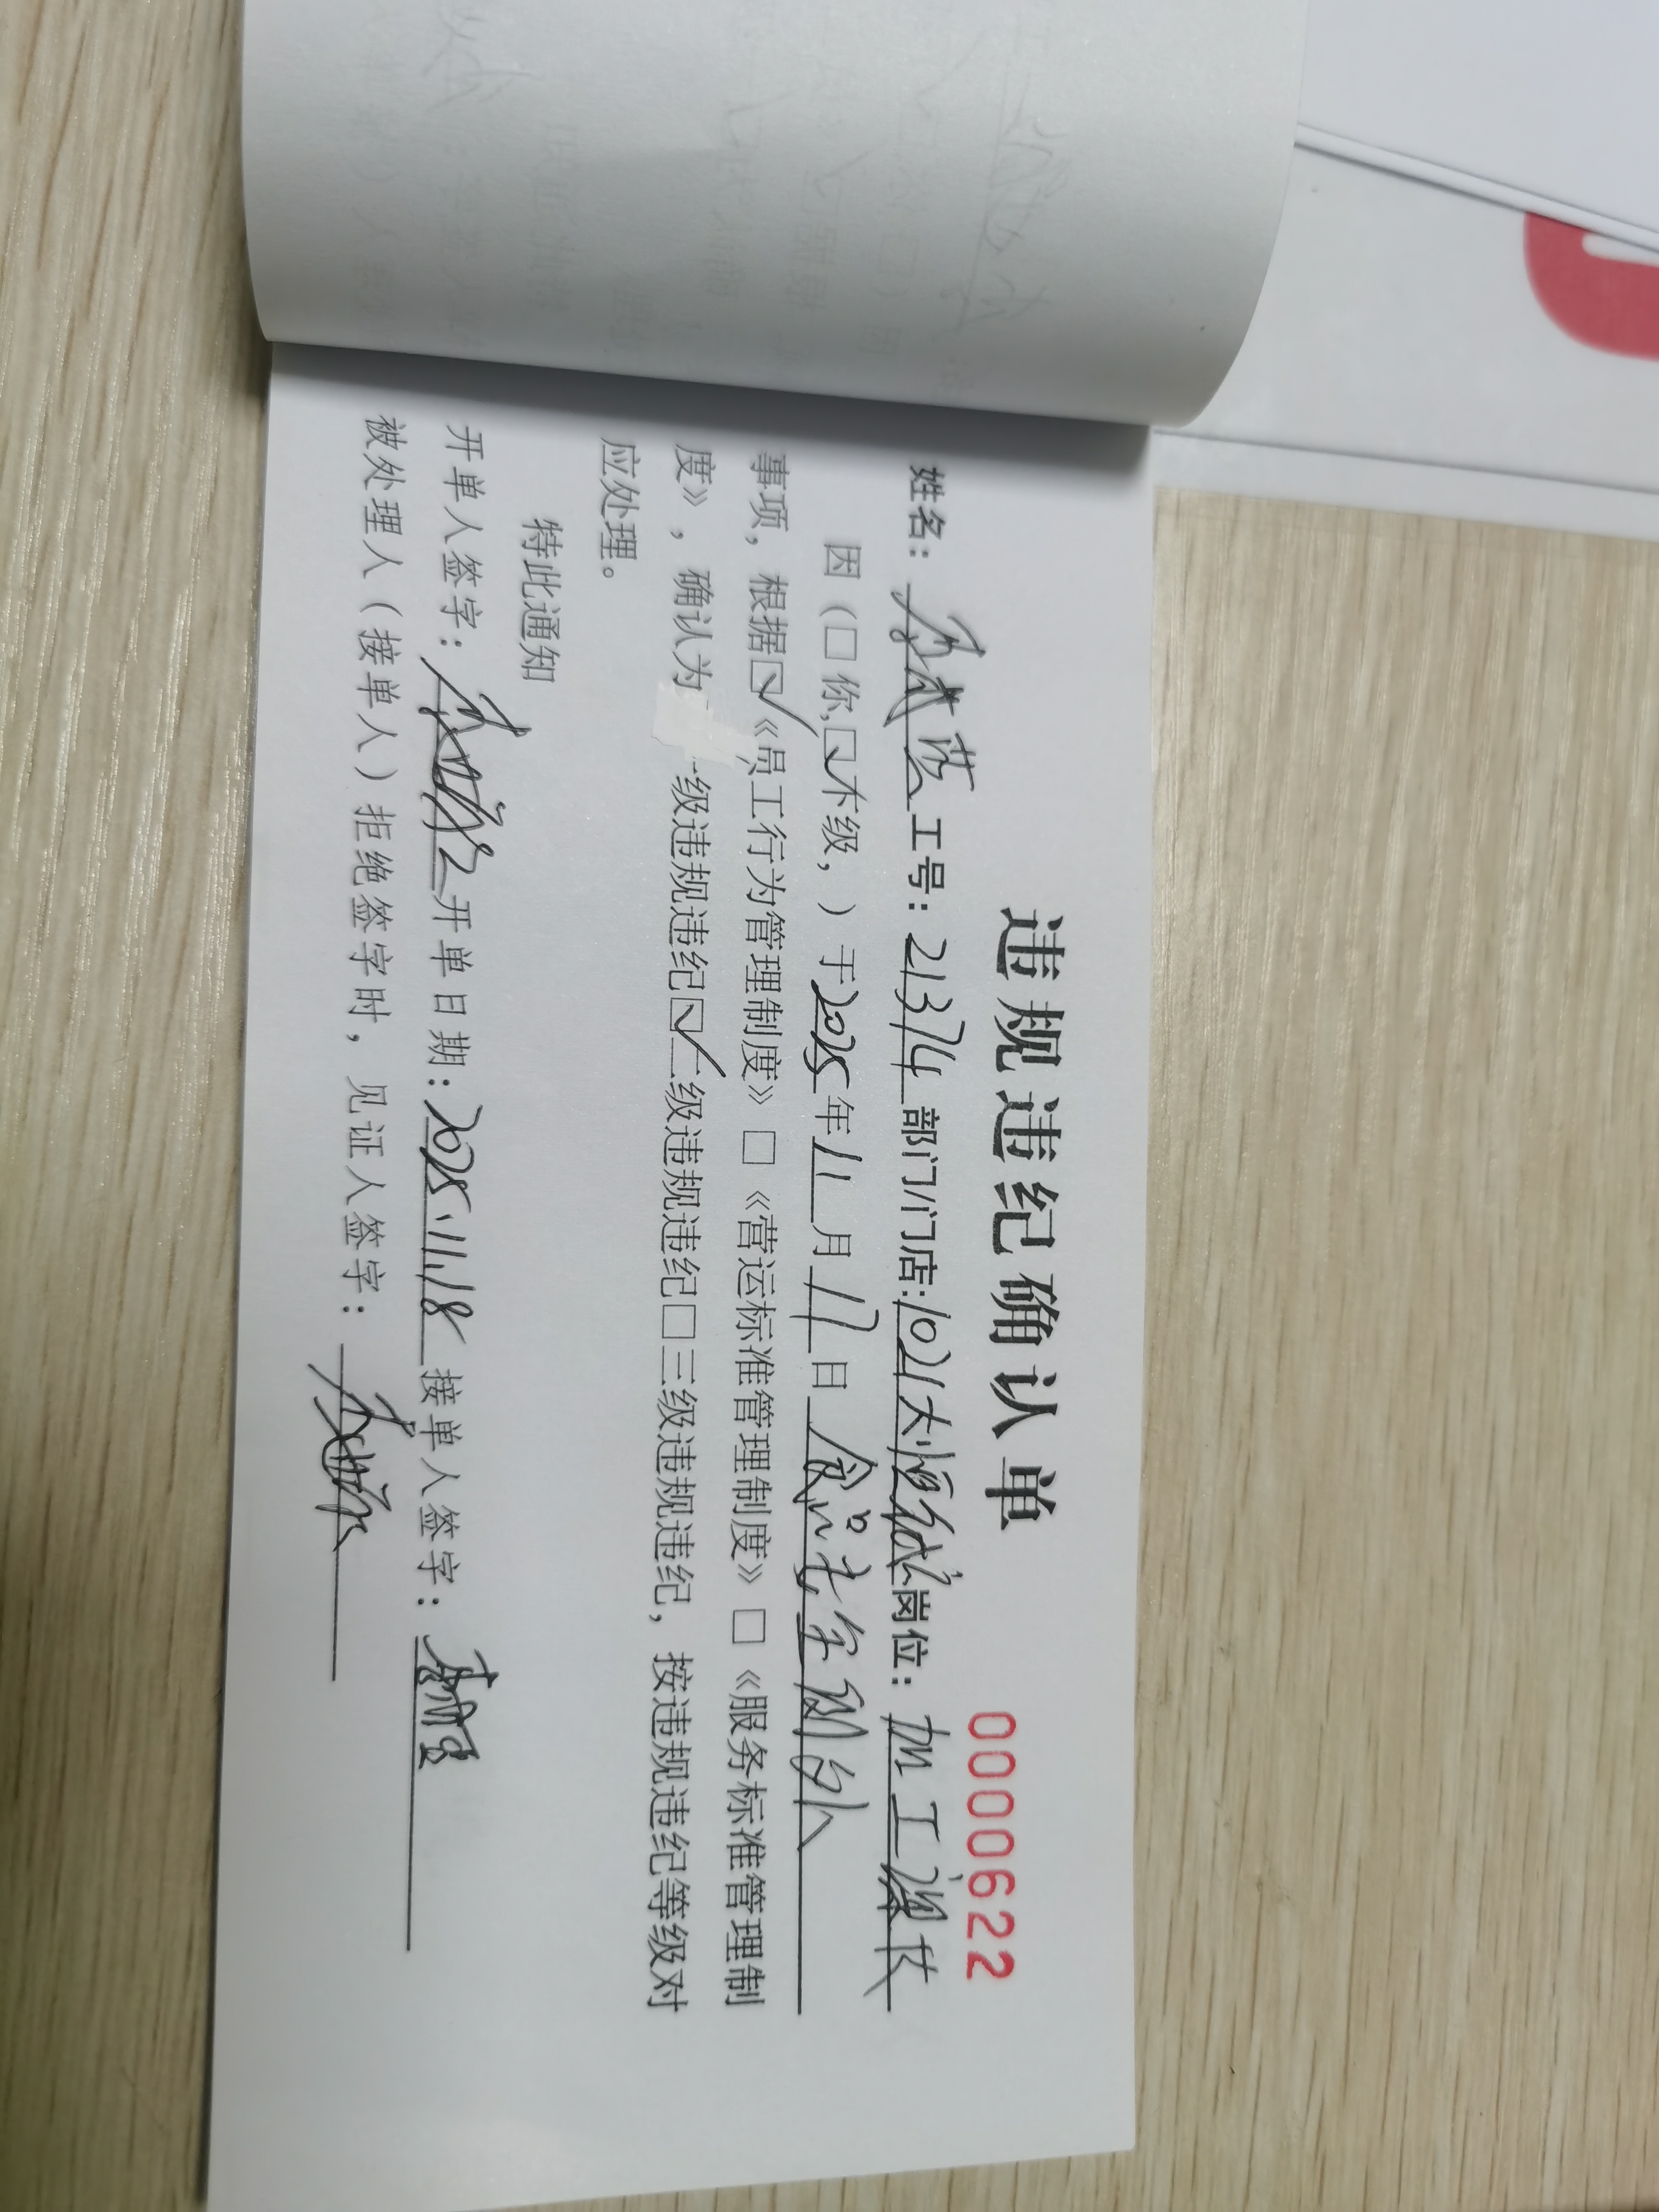 违规违纪确认单
0000622
姓名： 工号：21374 部门/门店:1021大 岗位：加工 技
因（□你,☑下级，）于2025年11月17日食品安全 例外
事项，根据☑《员工行为管理制度》□《营运标准管理制度》□《服务标准管理制
度》，确认为 一级违规违纪☑二级违规违纪□三级违规违纪，按违规违纪等级对
应处理。
特此通知
开单人签字： 开单日期：2025.11.18 接单人签字：
被处理人（接单人）拒绝签字时，见证人签字：